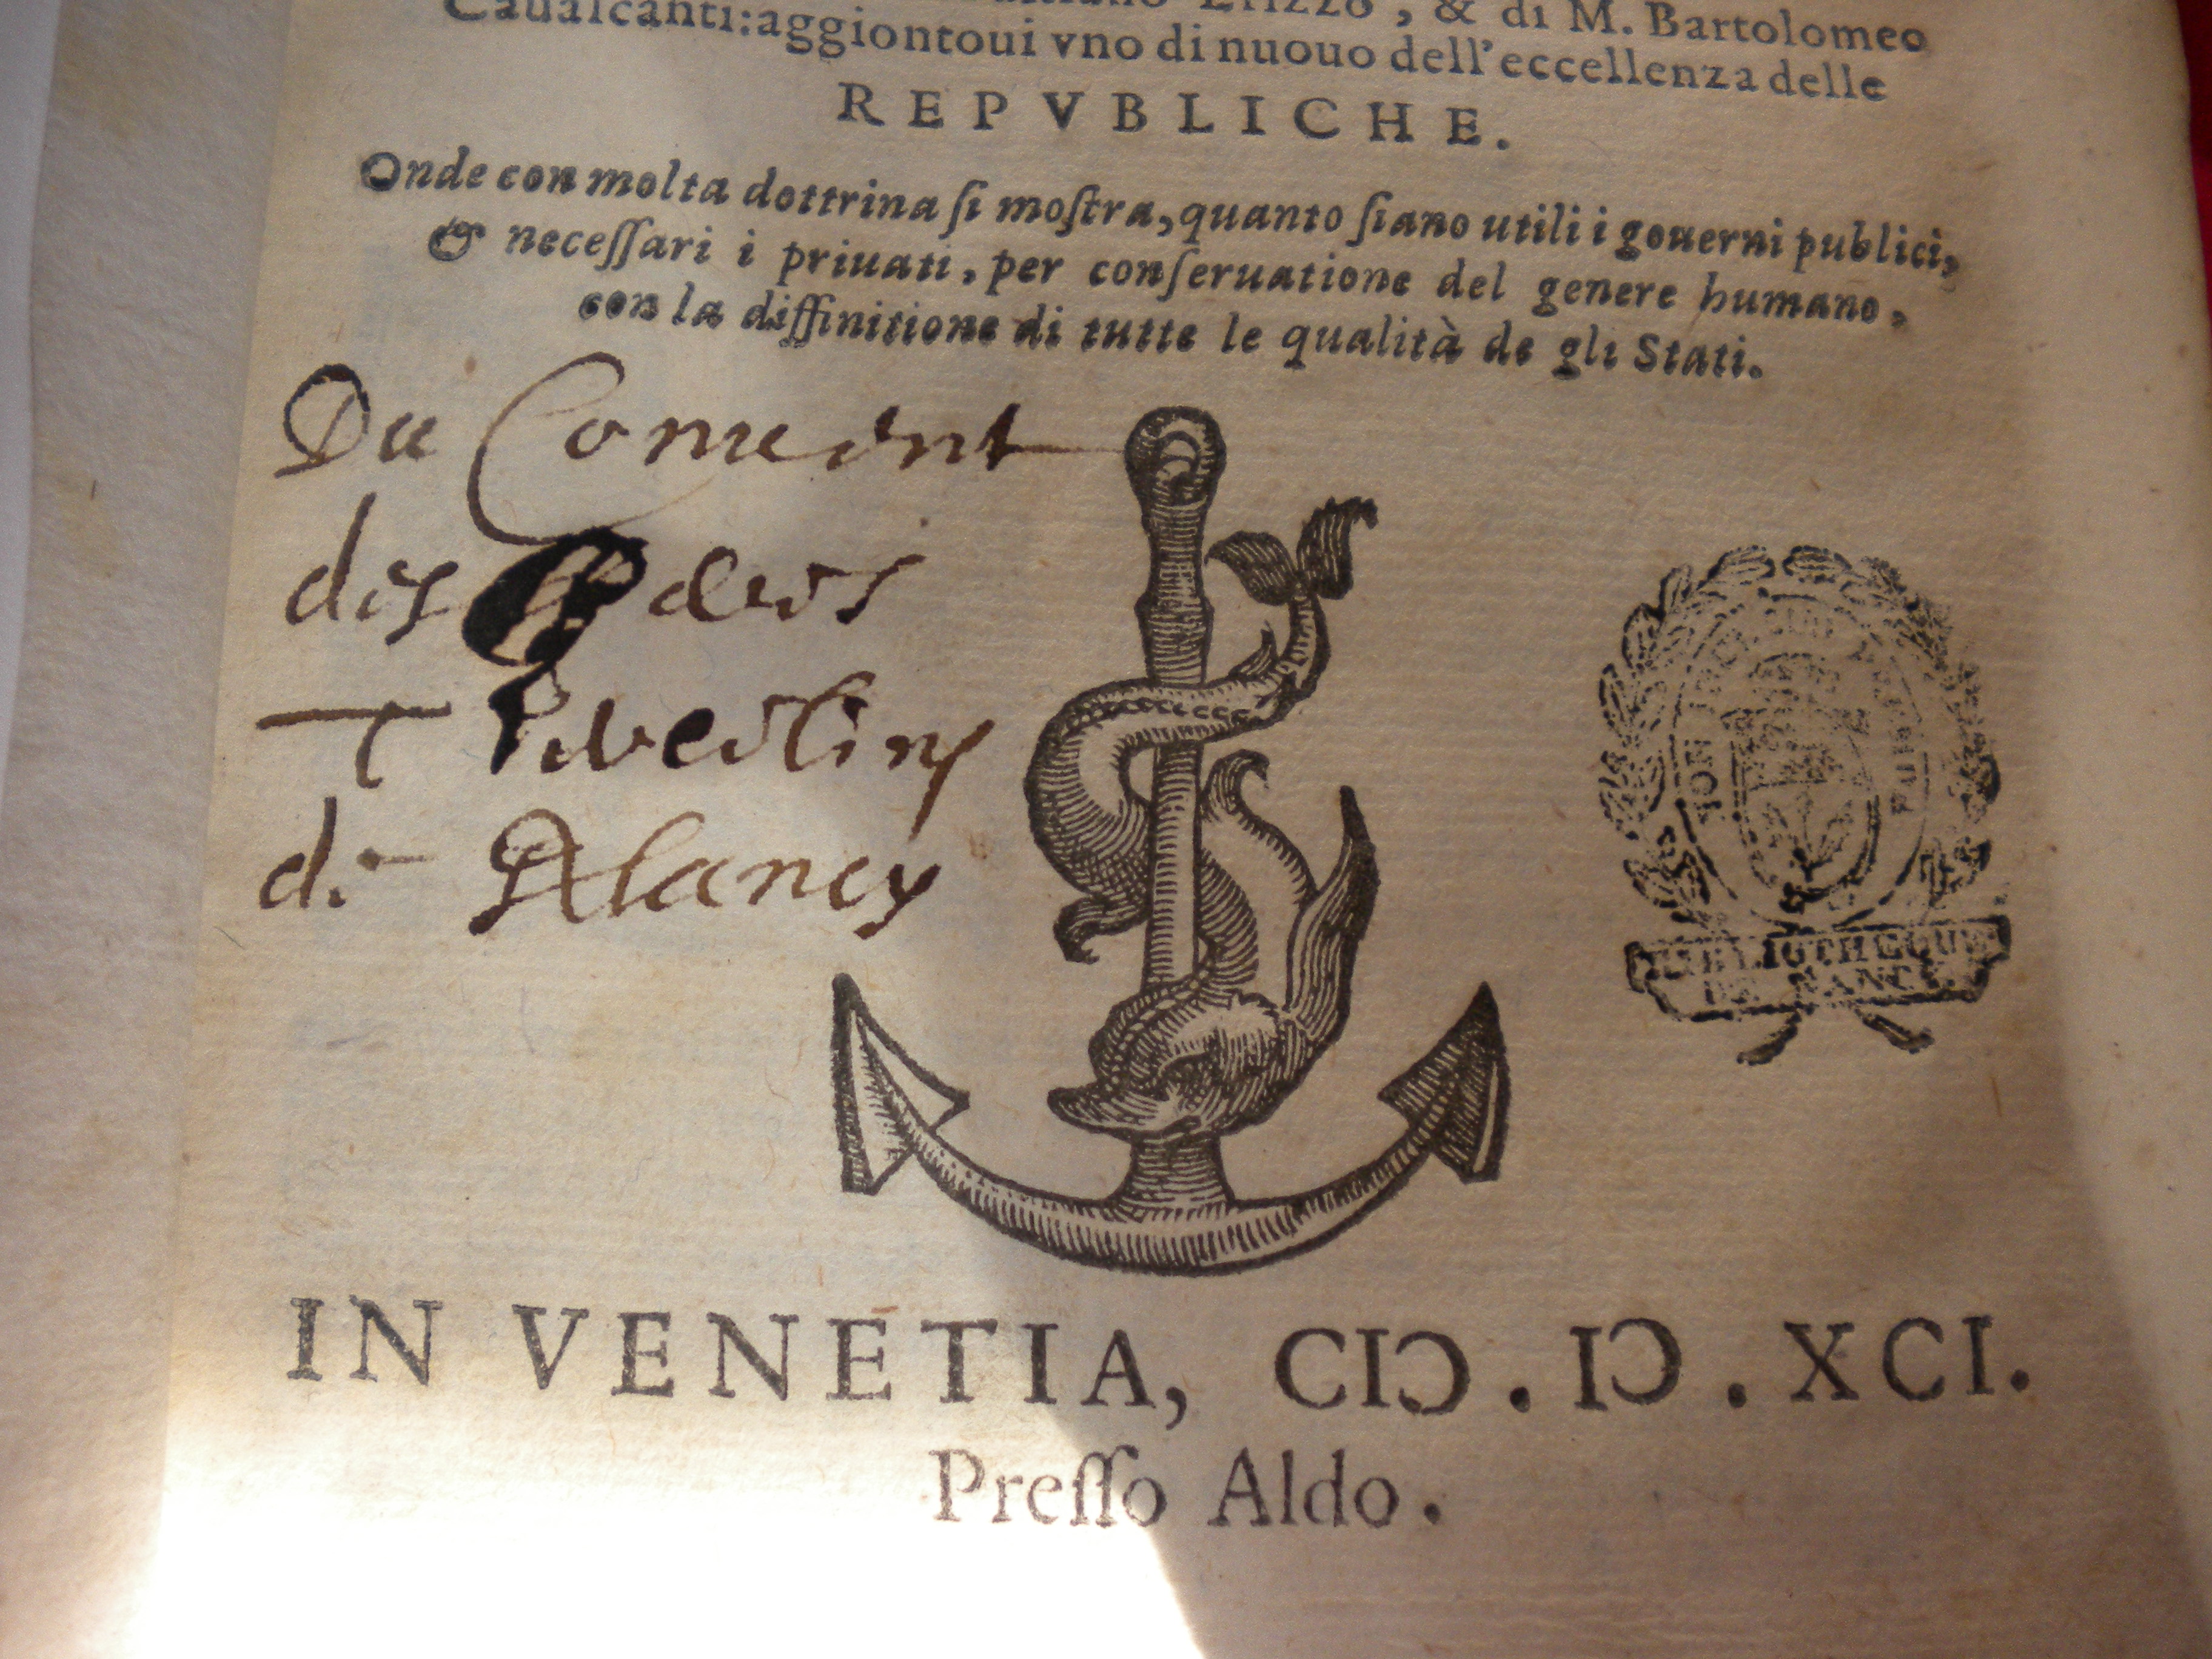 Erizzo, & di M. Bartolomeo
Caualcanti: aggiontoui vno di nuouo dell'eccellenza delle
REPVBLICHE.
Onde con molta dottrina ſi moſtra, quanto ſiano utili i gouerni publici,
& neceſſari i priuati, per conſeruatione del genere humano,
con la diffinitione di tutte le qualità de gli Stati.
Du Conuent
des
de Nancy
BIBLIOTHEQUE
DE NANCY
IN VENETIA, CIↃ. IↃ. XCI.
Preſſo Aldo.